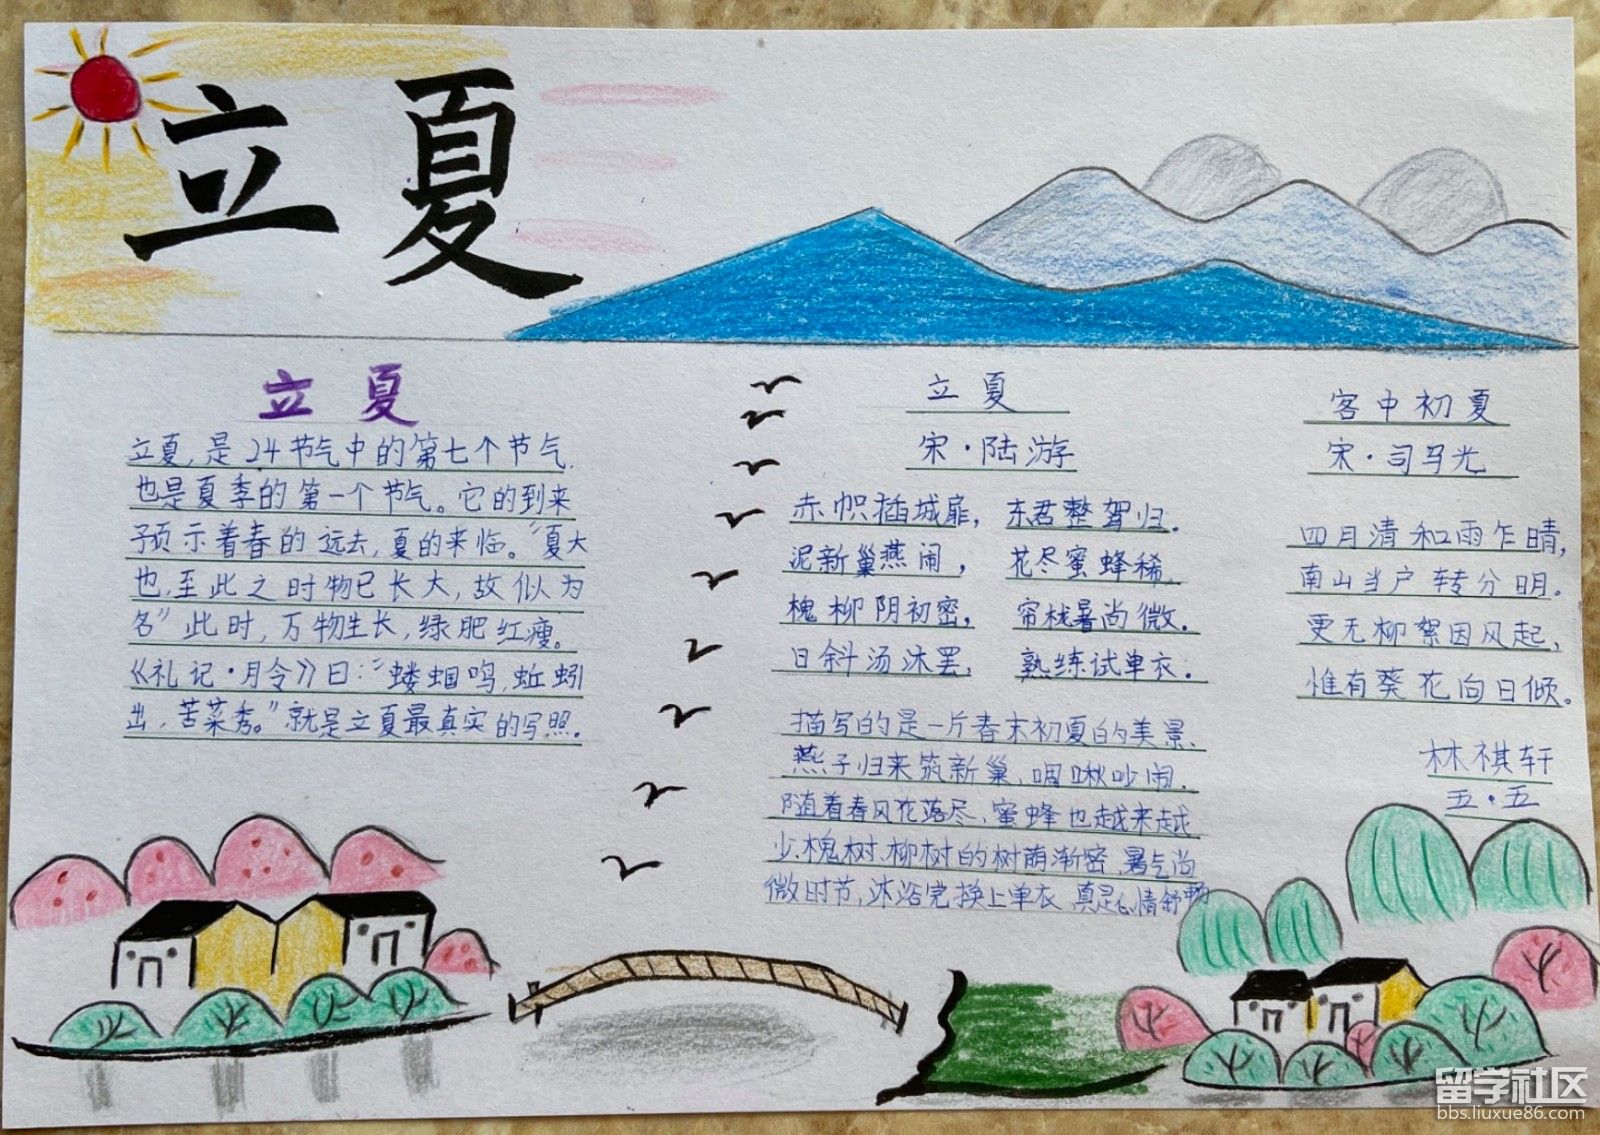 立夏
立夏
立夏,是24节气中的第七个节气,
也是夏季的第一个节气。它的到来
预示着春的远去,夏的来临。“夏大
也,至此之时物已长大,故似为
名”此时,万物生长,绿肥红瘦。
《礼记·月令》曰:“蝼蝈鸣,蚯蚓
出,苦菜秀。”就是立夏最真实的写照.
立夏
宋·陆游
赤帜插城扉,东君整驾归.
泥新巢燕闹,花尽蜜蜂稀.
槐柳阴初密,帘栊暑尚微.
日斜汤沐罢,熟练试单衣.
描写的是一片春末初夏的美景.
燕子归来筑新巢,啁啾吵闹.
随着春风花落尽,蜜蜂也越来越
少.槐树、柳树的树荫渐密,暑气尚
微时节,沐浴完换上单衣 真是心情舒畅
客中初夏
宋·司马光
四月清和雨乍晴,
南山当户转分明.
更无柳絮因风起,
惟有葵花向日倾.
林祺轩
五·五
留学社区
bbs.liuxue86.com